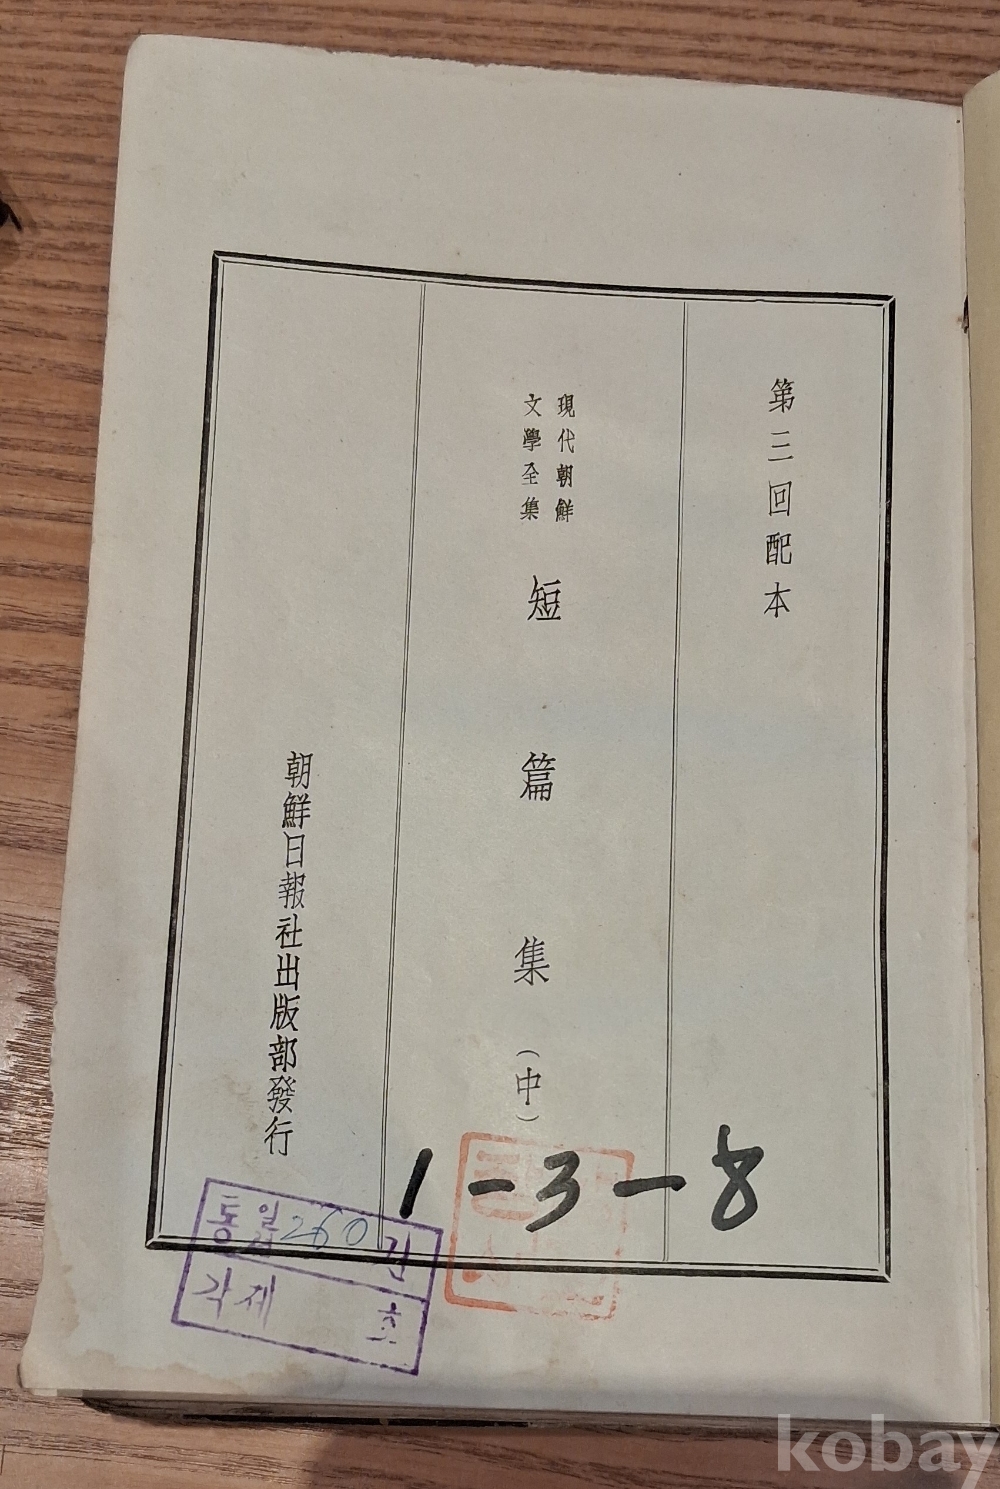 第三回配本
現代朝鮮
文學全集
短篇集（中）
朝鮮日報社出版部發行
1-3-8
통일 260 권
각제 호
kobay